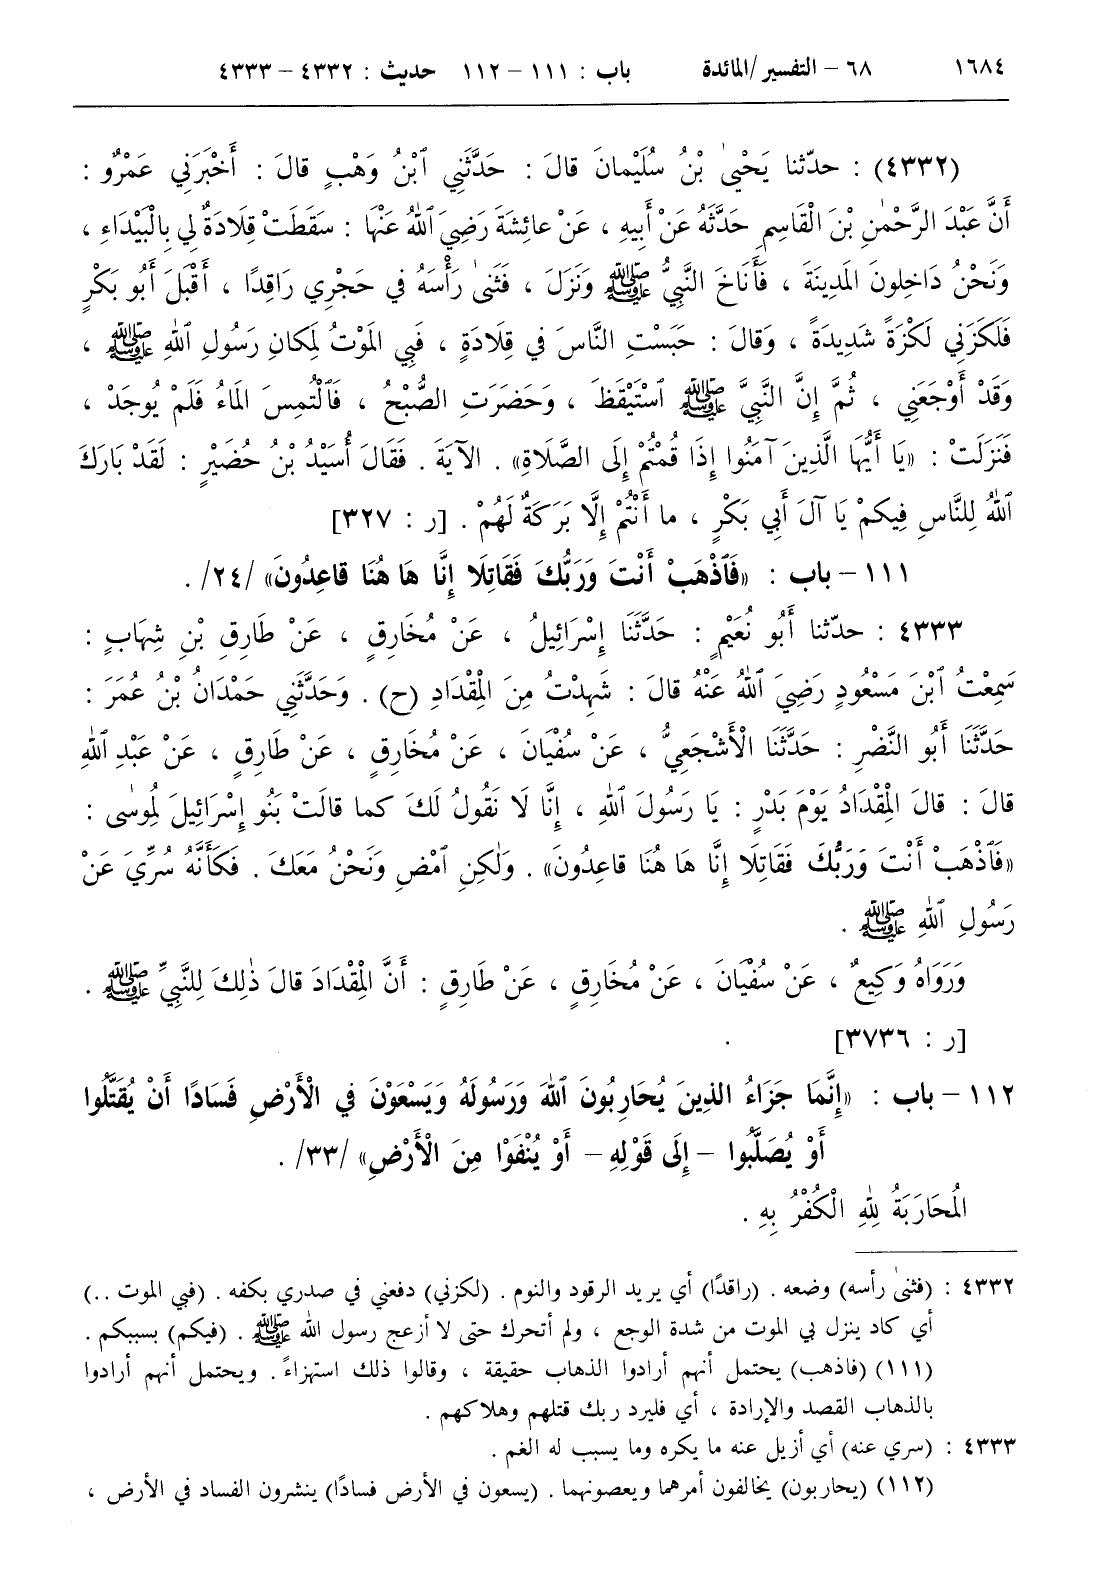 ١٦٨٤ ٦٨ – التفسير/المائدة باب : ١١١ – ١١٢ حديث : ٤٣٣٢ – ٤٣٣٣
(٤٣٣٢) : حدّثنا يَحْيىٰ بْنُ سُلَيْمانَ قالَ : حَدَّثَنِي ٱبْنُ وَهْبٍ قالَ : أَخْبَرَنِي عَمْرٌو :
أَنَّ عَبْدَ الرَّحْمٰنِ بْنَ الْقَاسِمِ حَدَّثَهُ عَنْ أَبِيهِ ، عَنْ عائِشَةَ رَضِيَ ٱللهُ عَنْهَا : سَقَطَتْ قِلَادَةٌ لِي بِالْبَيْدَاءِ ،
وَنَحْنُ دَاخِلُونَ المَدِينَةَ ، فَأَنَاخَ النَّبِيُّ ﷺ وَنَزَلَ ، فَثَنىٰ رَأْسَهُ في حَجْرِي رَاقِدًا ، أَقْبَلَ أَبُو بَكْرٍ
فَلَكَزَنِي لَكْزَةً شَدِيدَةً ، وَقالَ : حَبَسْتِ النَّاسَ في قِلَادَةٍ ، فَبِي المَوْتُ لِمَكانِ رَسُولِ ٱللهِ ﷺ ،
وَقَدْ أَوْجَعَنِي ، ثُمَّ إِنَّ النَّبِيَّ ﷺ ٱسْتَيْقَظَ ، وَحَضَرَتِ الصُّبْحُ ، فَٱلْتُمِسَ المَاءُ فَلَمْ يُوجَدْ ،
فَنَزَلَتْ : «يَا أَيُّهَا الَّذِينَ آمَنُوا إِذَا قُمْتُمْ إِلَى الصَّلَاةِ» . الآيَةَ . فَقَالَ أُسَيْدُ بْنُ حُضَيْرٍ : لَقَدْ بَارَكَ
ٱللهُ لِلنَّاسِ فِيكمْ يَا آلَ أَبِي بَكْرٍ ، ما أَنْتُمْ إِلَّا بَرَكَةٌ لَهُمْ . [ر : ٣٢٧]
١١١ – باب : «فَٱذْهَبْ أَنْتَ وَرَبُّكَ فَقَاتِلَا إِنَّا هَا هُنَا قاعِدُونَ» /٢٤/ .
٤٣٣٣ : حدّثنا أَبُو نُعَيْمٍ : حَدَّثَنَا إِسْرَائِيلُ ، عَنْ مُخَارِقٍ ، عَنْ طَارِقِ بْنِ شِهَابٍ :
سَمِعْتُ ٱبْنَ مَسْعُودٍ رَضِيَ ٱللهُ عَنْهُ قالَ : شَهِدْتُ مِنَ الْمِقْدَادِ (ح) . وَحَدَّثَنِي حَمْدَانُ بْنُ عُمَرَ :
حَدَّثَنَا أَبُو النَّضْرِ : حَدَّثَنَا الْأَشْجَعِيُّ ، عَنْ سُفْيَانَ ، عَنْ مُخَارِقٍ ، عَنْ طَارِقٍ ، عَنْ عَبْدِ ٱللهِ
قالَ : قالَ الْمِقْدَادُ يَوْمَ بَدْرٍ : يَا رَسُولَ ٱللهِ ، إِنَّا لَا نَقُولُ لَكَ كما قالَتْ بَنُو إِسْرَائِيلَ لِمُوسٰى :
«فَٱذْهَبْ أَنْتَ وَرَبُّكَ فَقَاتِلَا إِنَّا هَا هُنَا قاعِدُونَ» . وَلٰكِنِ ٱمْضِ وَنَحْنُ مَعَكَ . فَكَأَنَّهُ سُرِّيَ عَنْ
رَسُولِ ٱللهِ ﷺ .
وَرَوَاهُ وَكِيعٌ ، عَنْ سُفْيَانَ ، عَنْ مُخَارِقٍ ، عَنْ طَارِقٍ : أَنَّ الْمِقْدَادَ قالَ ذٰلِكَ لِلنَّبِيِّ ﷺ .
[ر : ٣٧٣٦]
١١٢ – باب : «إِنَّمَا جَزَاءُ الذِينَ يُحَارِبُونَ ٱللهَ وَرَسُولَهُ وَيَسْعَوْنَ فِي الْأَرْضِ فَسَادًا أَنْ يُقَتَّلُوا
أَوْ يُصَلَّبُوا – إِلَى قَوْلِهِ – أَوْ يُنْفَوْا مِنَ الْأَرْضِ» /٣٣/ .
الْمُحَارَبَةُ لِلهِ الْكُفْرُ بِهِ .
٤٣٣٢ : (فثنىٰ رأسه) وضعه . (راقدًا) أي يريد الرقود والنوم . (لكزني) دفعني في صدري بكفه . (فبي الموت ..)
أي كاد ينزل بي الموت من شدة الوجع ، ولم أتحرك حتى لا أزعج رسول الله ﷺ . (فيكم) بسببكم .
(١١١) (فاذهب) يحتمل أنهم أرادوا الذهاب حقيقة ، وقالوا ذلك استهزاءً . ويحتمل أنهم أرادوا
بالذهاب القصد والإرادة ، أي فليرد ربك قتلهم وهلاكهم .
٤٣٣٣ : (سري عنه) أي أزيل عنه ما يكره وما يسبب له الغم .
(١١٢) (يحاربون) يخالفون أمرهما ويعصونهما . (يسعون في الأرض فسادًا) ينشرون الفساد في الأرض ،